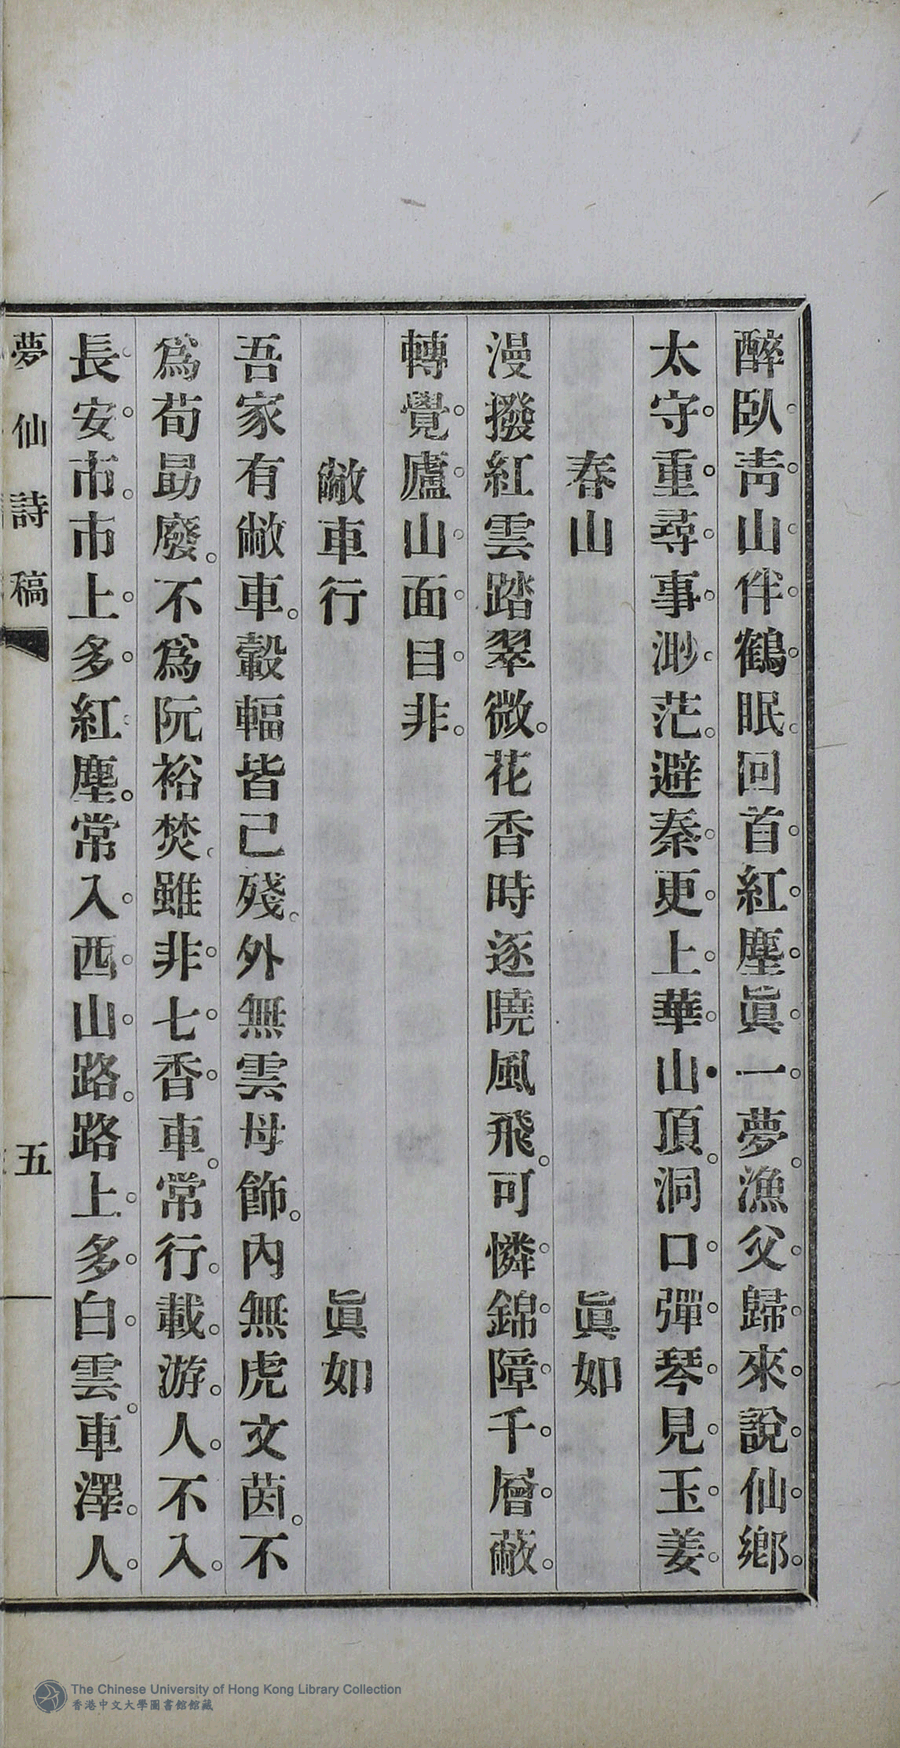 醉臥靑山伴鶴眠回首紅塵眞一夢漁父歸來說仙鄕
太守重尋事渺茫避秦更上華山頂洞口彈琴見玉姜
春山　眞如
漫撥紅雲踏翠微花香時逐曉風飛可憐錦障千層蔽
轉覺廬山面目非
敝車行　眞如
吾家有敝車轂輻皆已殘外無雲母飾內無虎文茵不
爲荀勗廢不爲阮裕焚雖非七香車常行載游人不入
長安市市上多紅塵常入西山路路上多白雲車澤人
夢仙詩稿　五
The Chinese University of Hong Kong Library Collection
香港中文大學圖書館館藏